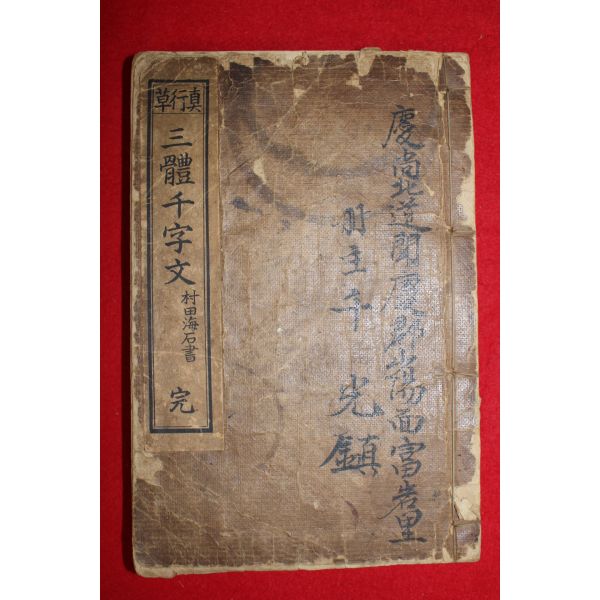 慶尚北道聞慶郡山陽面富岩里
冊主 光鎮
真行草
三體千字文
村田海石書
完